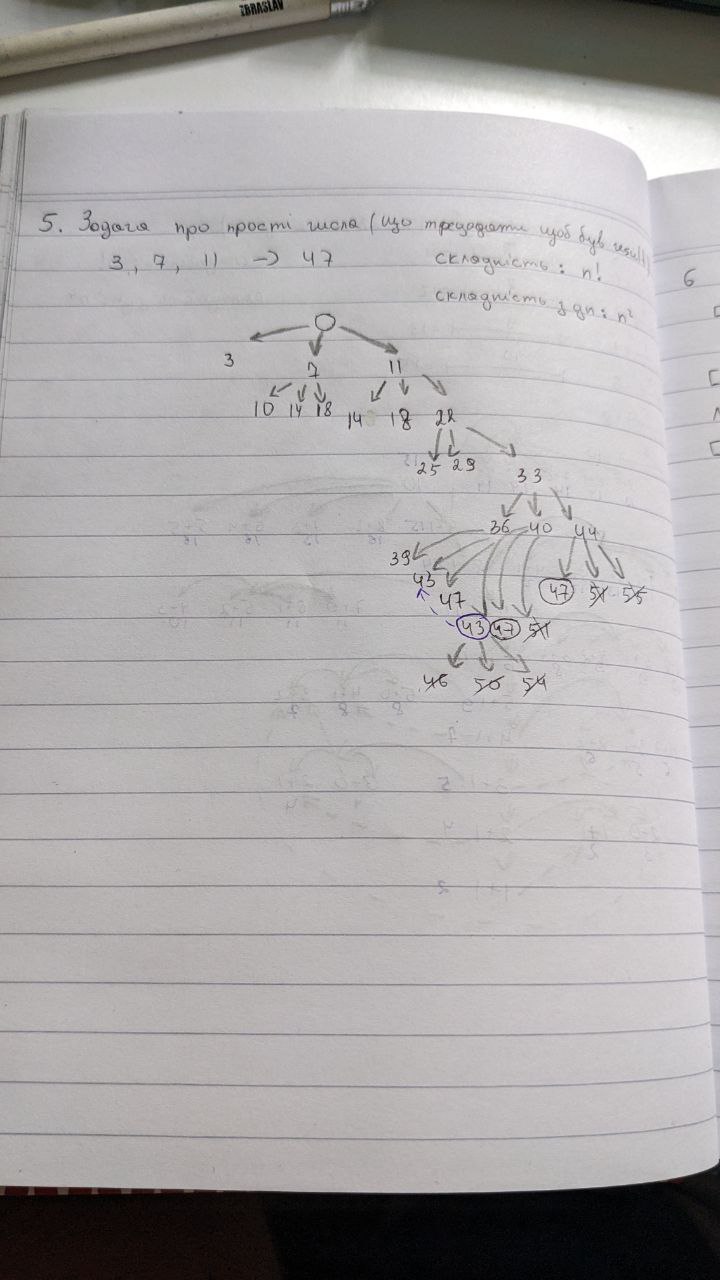 ZBRASLAV
5. Задача про прості числа (що треба дати щоб був result)
3, 7, 11 -> 47
складність: n!
складність з дп: n²
6
3 7 11
10 14 18 14 18 22
25 29 33
36 40 44
39
43
47
47 51 55
43 47 51
46 50 54